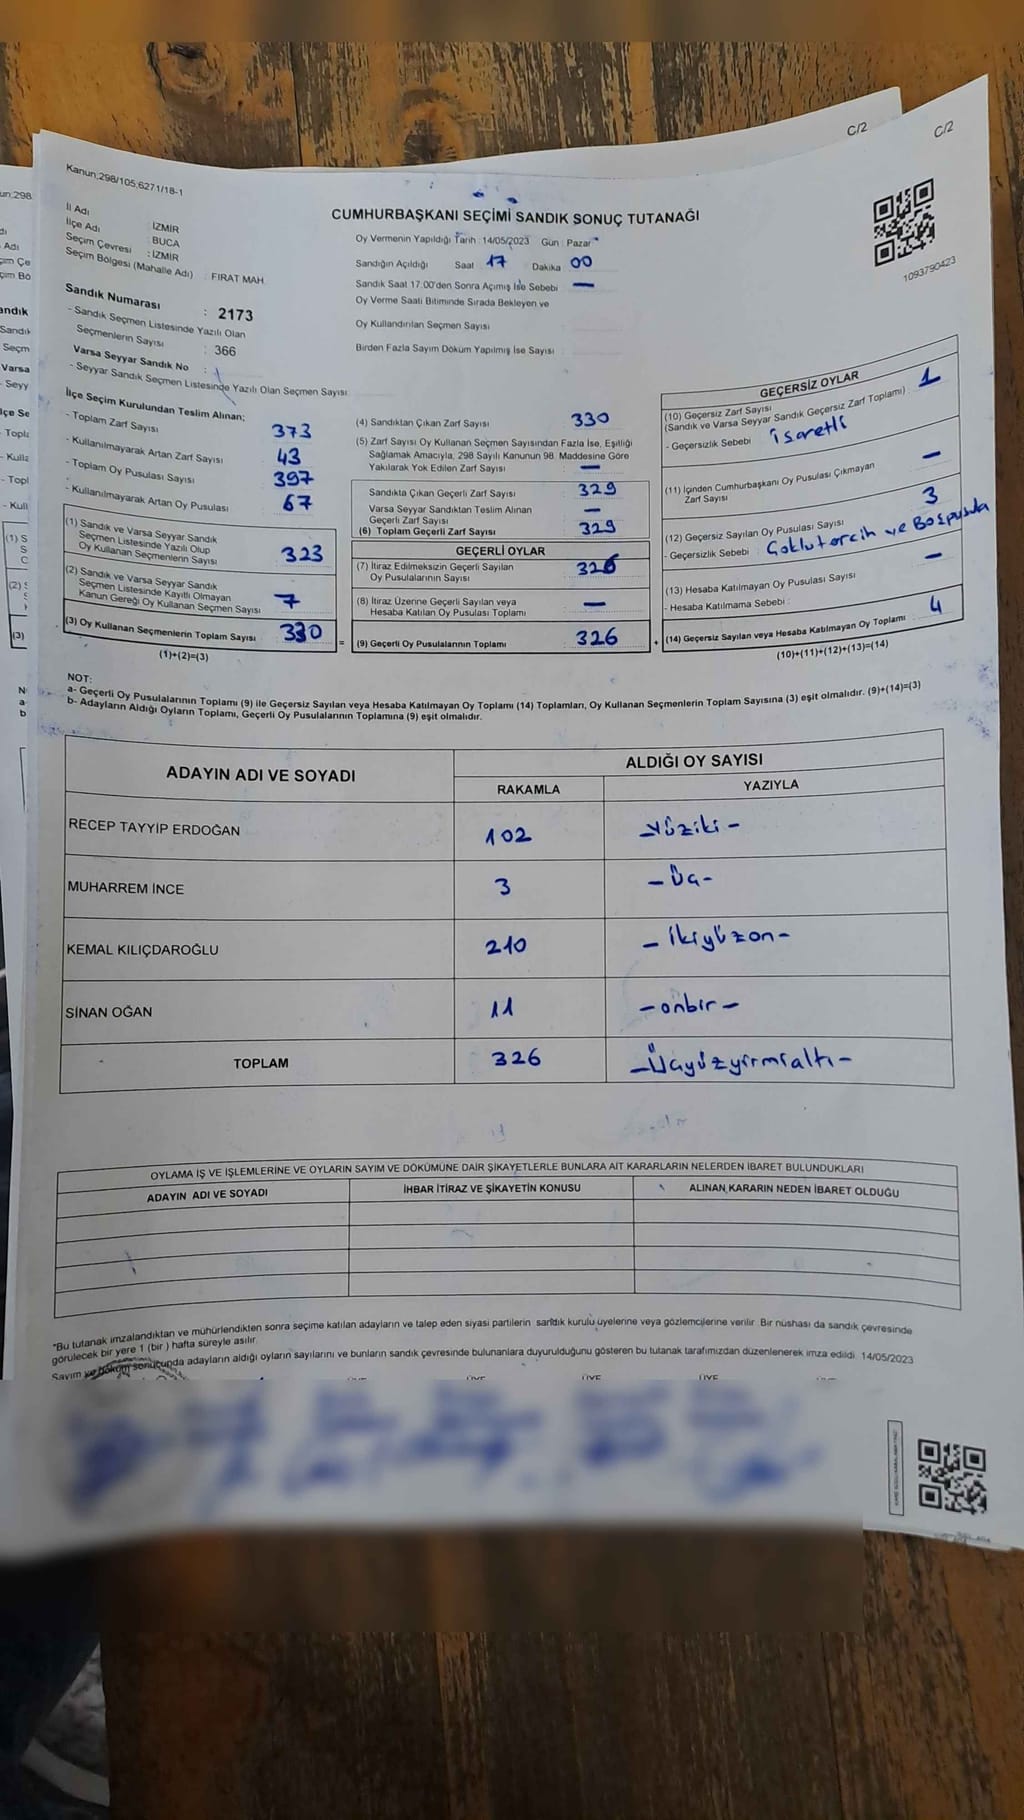 C/2
C/2
Kanun;298/105;6271/18-1
CUMHURBAŞKANI SEÇİMİ SANDIK SONUÇ TUTANAĞI
1093790423
İl Adı : İZMİR
İlçe Adı : BUCA
Seçim Çevresi : İZMİR
Seçim Bölgesi (Mahalle Adı) : FIRAT MAH.
Sandık Numarası : 2173
- Sandık Seçmen Listesinde Yazılı Olan
Seçmenlerin Sayısı : 366
Varsa Seyyar Sandık No :
- Seyyar Sandık Seçmen Listesinde Yazılı Olan Seçmen Sayısı
Oy Vermenin Yapıldığı Tarih : 14/05/2023 Gün : Pazar
Sandığın Açıldığı Saat 17 Dakika 00
Sandık Saat 17.00'den Sonra Açımış İse Sebebi : —
Oy Verme Saati Bitiminde Sırada Bekleyen ve
Oy Kullandırılan Seçmen Sayısı
Birden Fazla Sayım Döküm Yapılmış İse Sayısı
İlçe Seçim Kurulundan Teslim Alınan;
- Toplam Zarf Sayısı 373
- Kullanılmayarak Artan Zarf Sayısı 43
- Toplam Oy Pusulası Sayısı 397
- Kullanılmayarak Artan Oy Pusulası 67
(1) Sandık ve Varsa Seyyar Sandık
Seçmen Listesinde Yazılı Olup
Oy Kullanan Seçmenlerin Sayısı 323
(2) Sandık ve Varsa Seyyar Sandık
Seçmen Listesinde Kayıtlı Olmayan
Kanun Gereği Oy Kullanan Seçmen Sayısı 7
(3) Oy Kullanan Seçmenlerin Toplam Sayısı 330 =
(1)+(2)=(3)
(4) Sandıktan Çıkan Zarf Sayısı : 330
(5) Zarf Sayısı Oy Kullanan Seçmen Sayısından Fazla İse, Eşitliği
Sağlamak Amacıyla, 298 Sayılı Kanunun 98. Maddesine Göre
Yakılarak Yok Edilen Zarf Sayısı : —
Sandıkta Çıkan Geçerli Zarf Sayısı : 329
Varsa Seyyar Sandıktan Teslim Alınan
Geçerli Zarf Sayısı : —
(6) Toplam Geçerli Zarf Sayısı : 329
GEÇERLİ OYLAR
(7) İtiraz Edilmeksizin Geçerli Sayılan
Oy Pusulalarının Sayısı : 326
(8) İtiraz Üzerine Geçerli Sayılan veya
Hesaba Katılan Oy Pusulası Toplamı : —
(9) Geçerli Oy Pusulalarının Toplamı : 326 +
GEÇERSİZ OYLAR
(10) Geçersiz Zarf Sayısı 1
(Sandık ve Varsa Seyyar Sandık Geçersiz Zarf Toplamı)
- Geçersizlik Sebebi : işaretli
(11) İçinden Cumhurbaşkanı Oy Pusulası Çıkmayan
Zarf Sayısı —
(12) Geçersiz Sayılan Oy Pusulası Sayısı 3
- Geçersizlik Sebebi : Çoklu tercih ve Boşpusula
(13) Hesaba Katılmayan Oy Pusulası Sayısı —
- Hesaba Katılmama Sebebi :
(14) Geçersiz Sayılan veya Hesaba Katılmayan Oy Toplamı : 4
(10)+(11)+(12)+(13)=(14)
NOT:
a- Geçerli Oy Pusulalarının Toplamı (9) ile Geçersiz Sayılan veya Hesaba Katılmayan Oy Toplamı (14) Toplamları, Oy Kullanan Seçmenlerin Toplam Sayısına (3) eşit olmalıdır. (9)+(14)=(3)
b- Adayların Aldığı Oyların Toplamı, Geçerli Oy Pusulalarının Toplamına (9) eşit olmalıdır.
ADAYIN ADI VE SOYADI
ALDIĞI OY SAYISI
RAKAMLA YAZIYLA
RECEP TAYYİP ERDOĞAN 102 -Yüziki-
MUHARREM İNCE 3 -Üç-
KEMAL KILIÇDAROĞLU 210 -İkiyüzon-
SİNAN OĞAN 11 -onbir-
TOPLAM 326 -Üçyüzyirmialtı-
OYLAMA İŞ VE İŞLEMLERİNE VE OYLARIN SAYIM VE DÖKÜMÜNE DAİR ŞİKAYETLERLE BUNLARA AİT KARARLARIN NELERDEN İBARET BULUNDUKLARI
ADAYIN ADI VE SOYADI İHBAR İTİRAZ VE ŞİKAYETİN KONUSU ALINAN KARARIN NEDEN İBARET OLDUĞU
*Bu tutanak imzalandıktan ve mühürlendikten sonra seçime katılan adayların ve talep eden siyasi partilerin sandık kurulu üyelerine veya gözlemcilerine verilir. Bir nüshası da sandık çevresinde
görülecek bir yere 1 (bir ) hafta süreyle asılır.
Sayım ve döküm sonucunda adayların aldığı oyların sayılarını ve bunların sandık çevresinde bulunanlara duyurulduğunu gösteren bu tutanak tarafımızdan düzenlenerek imza edildi. 14/05/2023
ÜYE ÜYE ÜYE ÜYE